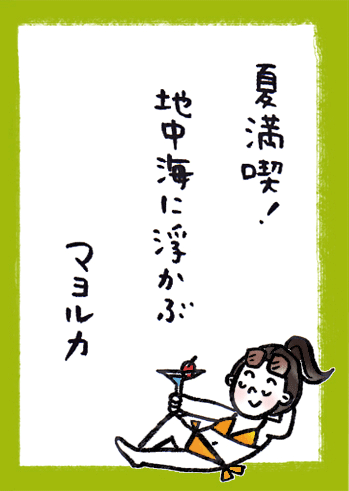 夏満喫!
地中海に浮かぶ
マヨルカ